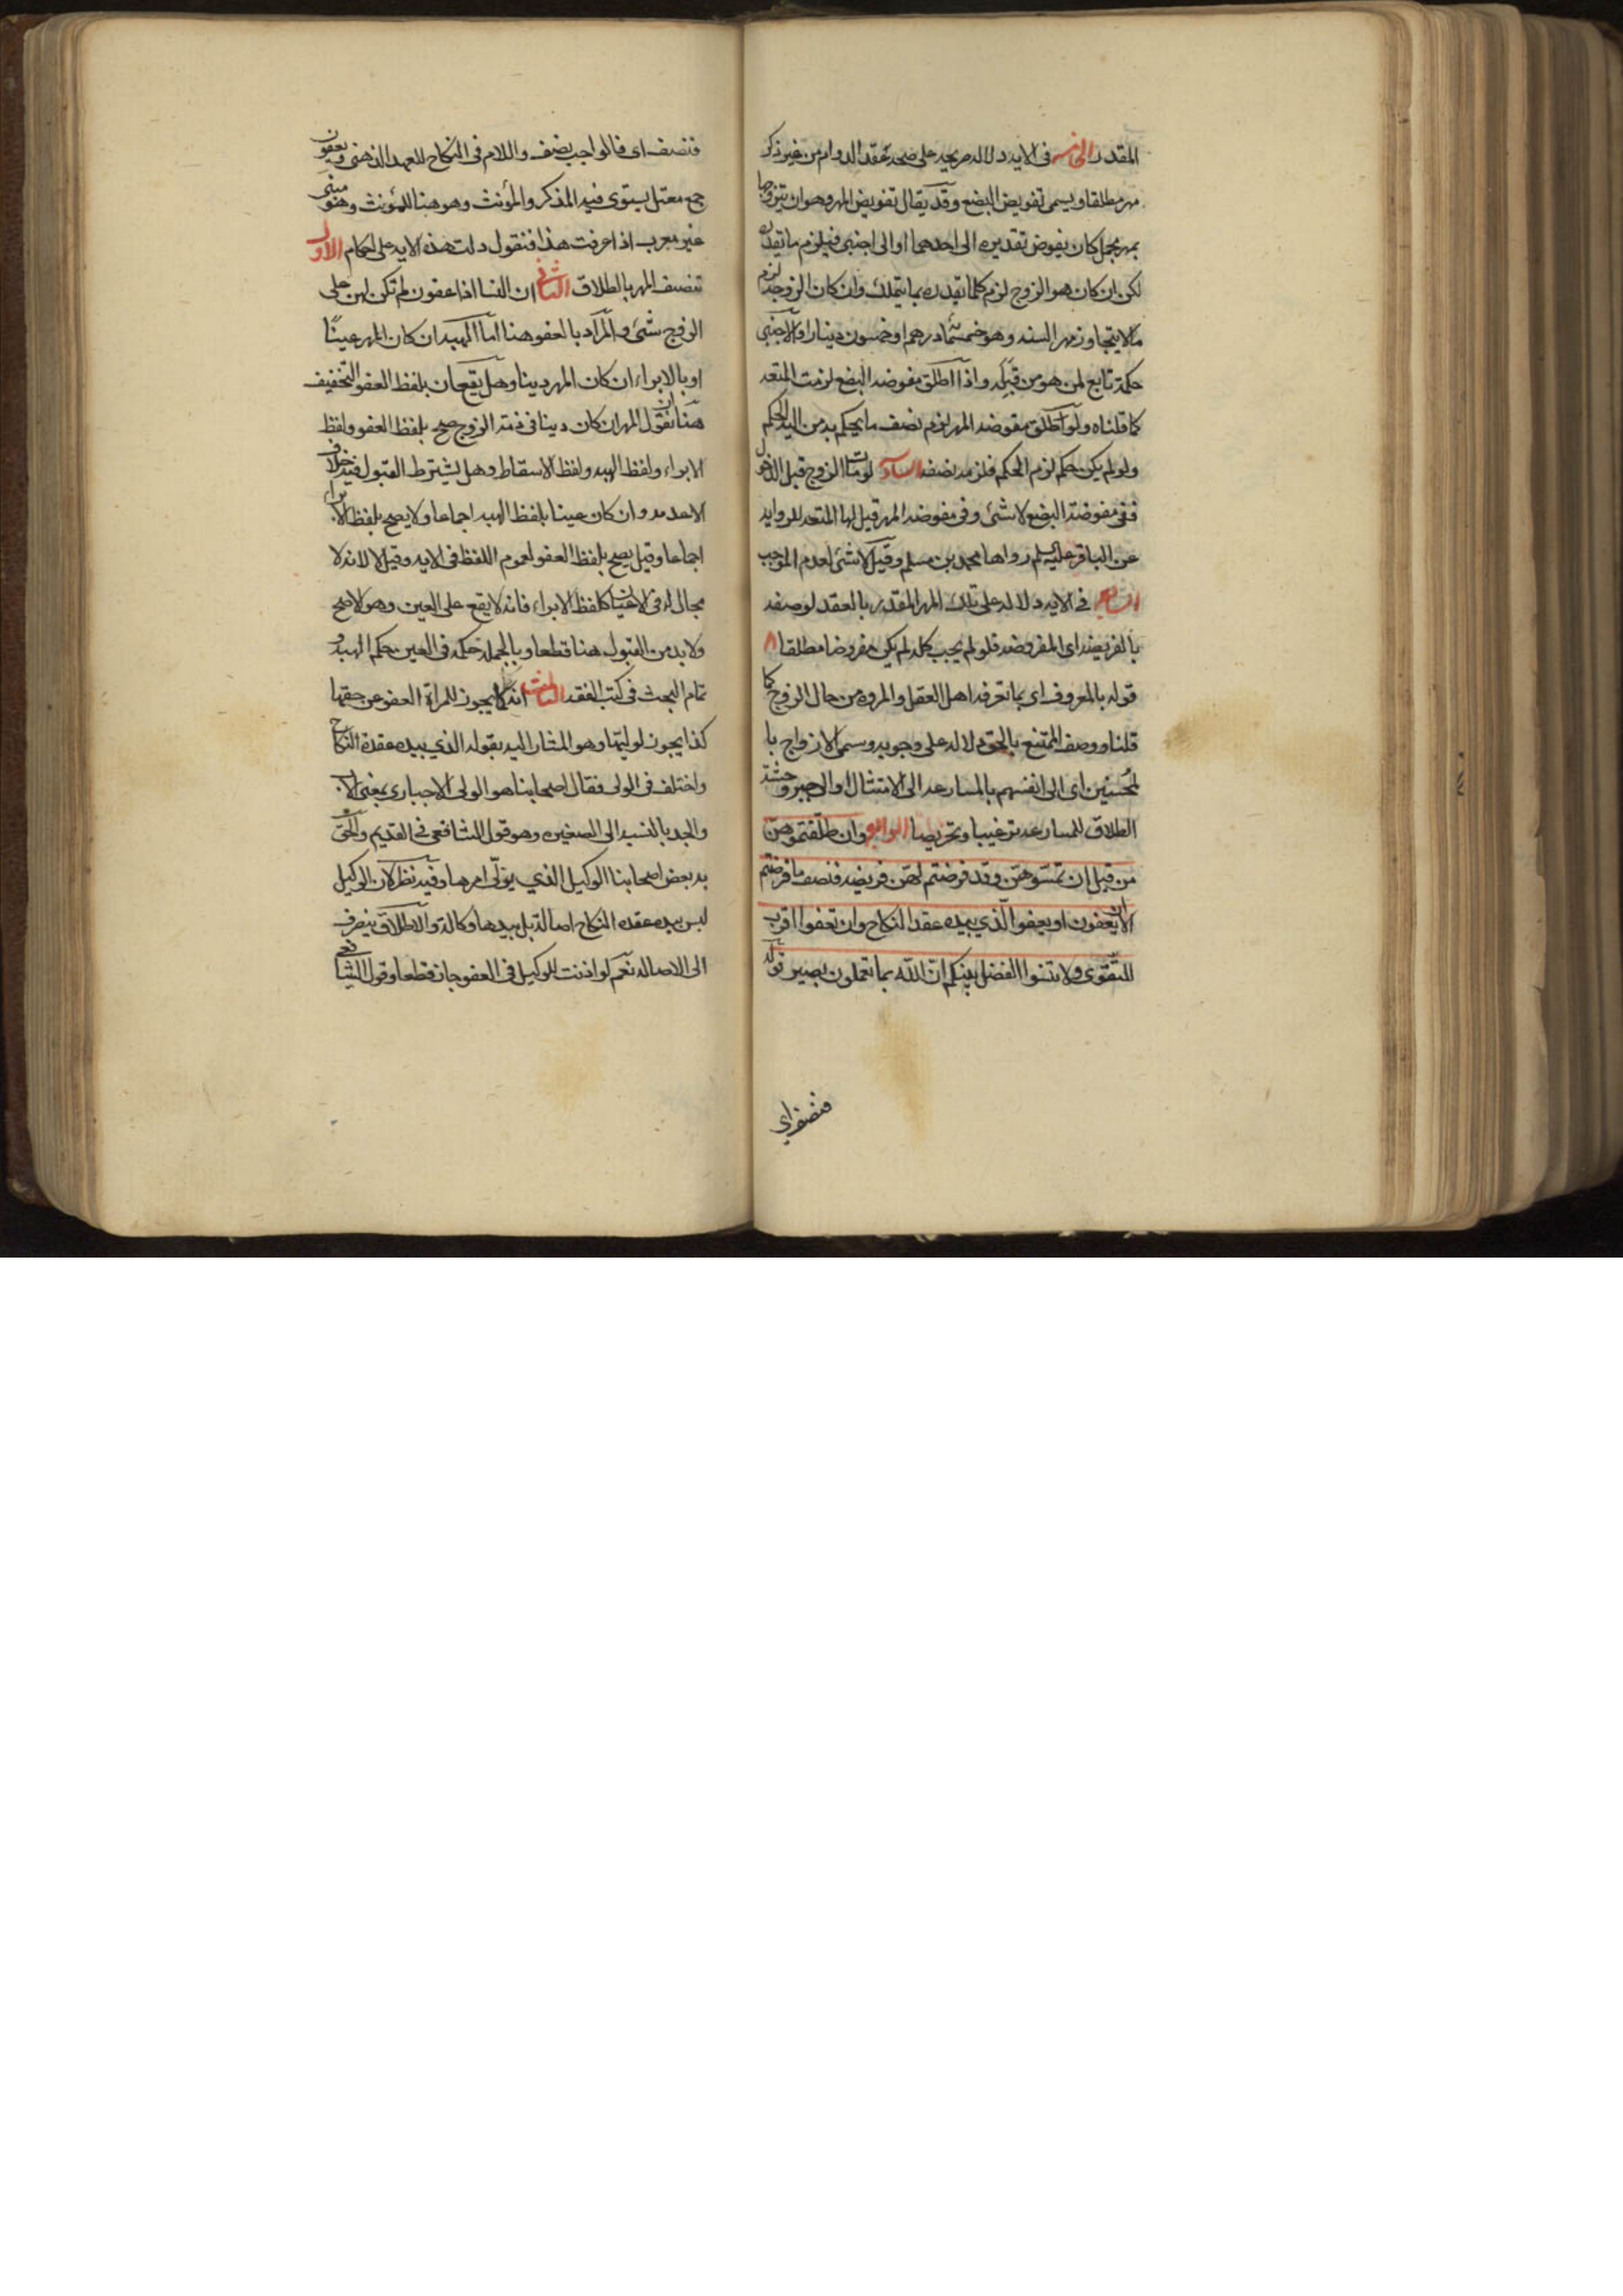 المقدر الخامس فى الايه دلاله صريحه على صحة عقد الدوام من غير ذكر
مهر مطلقا ويسمى تفويض البضع وقد يقال تفويض المهر وهو ان يتزوجها
بمهر مجمل كان يفوض تقديره الى احدهما او الى اجنبى فيلزم ما يقدره
لكن ان كان هو الزوج لزم كلما يقدره بما يتملك وان كان الزوجه لزم
ما لا يتجاوز مهر السنه وهو خمسمائة درهم او خمسون دينارا والاجنبى
حكمه تابع لمن هو من قبله واذا اطلق مفوضه البضع لزمت المتعه
كما قلناه ولو اطلق مفوضه المهر لزم نصف ما يحكم به من اليه الحكم
ولو لم يكن حكم لزم الحكم فلزمه نصفه السادس لو مات الزوج قبل الدخول
ففى مفوضة البضع لا شئ وفى مفوضه المهر قيل لها المتعه للروايه
عن الباقر عليه السلم رواها محمد بن مسلم وقيل لا شئ لعدم الموجب
السابع فى الايه دلاله على تملك المهر المقدر بالعقد لوصفه
بالفريضه اى المفروضه فلو لم يجب كله لم يكن مفروضا مطلقا ٨
قوله بالمعروف اى بما تعرفه اهل العقل والمروه من حال الزوج كما
قلنا ووصف التمتيع بالحق دلاله على وجوبه وسمى الازواج با
لمحسنين اى الى انفسهم بالمسارعه الى الامتثال او الاجبر وحثه
الطلاق للمسارعه ترغيبا وتحريصا الرابع وان طلقتموهن
من قبل ان تمسوهن وقد فرضتم لهن فريضه فنصف ما فرضتم
الا ان يعفون او يعفوا الذي بيده عقد النكاح وان تعفوا اقرب
للتقوى ولا تنسوا الفضل بينكم ان الله بما تعملون بصير قوله
فنصف اى
فنصف اى فالواجب نصف واللام فى النكاح للعهد الذهنى ويعفون
جمع معتل يستوى فيه المذكر والمؤنث وهو هنا للمؤنث وهو مبنى
غير معرب اذا عرفت هذا فنقول دلت هذه الايه على احكام الاول
تنصيف المهر بالطلاق الثانى ان النسا اذا عفون لم تكن لهن على
الزوج شئ والمراد بالعفو هنا اما الهبه ان كان المهر عينًا
او بالابراء ان كان المهر دينا وهل يقعان بلفظ العفو التخفيف
هنا ان نقول المهر ان كان دينا فى ذمة الزوج صح بلفظ العفو ولفظ
الابراء ولفظ الهبه ولفظ الاسقاط وهل يشترط القبول فيه خلاف
الا عدمه وان كان عينا بلفظ الهبه اجماعا ولا يصح بلفظ الابراء
اجماعا وقيل يصح بلفظ العفو لعموم اللفظ فى الايه وقيل لا لانه لا
مجال له فى الاعيان كلفظ الابراء فانه لا يقع على العين وهو الاصح
ولا بد من القبول هنا قطعا وبالجمله حكمه فى العين حكم الهبه و
تمام البحث فى كتب الفقه الثالث انه كما يجوز للمراة العفو عن حقها
كذا يجوز لوليها وهو المشار اليه بقوله الذي بيده عقدة النكاح
واختلف فى الولى فقال اصحابنا هو الولى الاجبارى يعنى الاب
والجد بالنسبه الى الصغيره وهو قول الشافعى فى القديم والحق
به بعض اصحابنا الوكيل الذي يولى امرها وفيه نظر لان الوكيل
ليس بيده عقده النكاح اصالة بل بيدها وكالة والاطلاق ينصرف
الى الاصاله نعم لو اذنت للوكيل فى العفو جاز قطعا وقول الشافعى